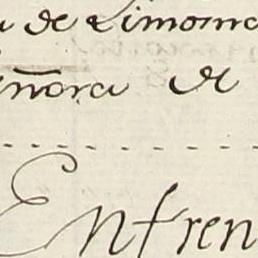 de Limosna
eñora de
Enfren